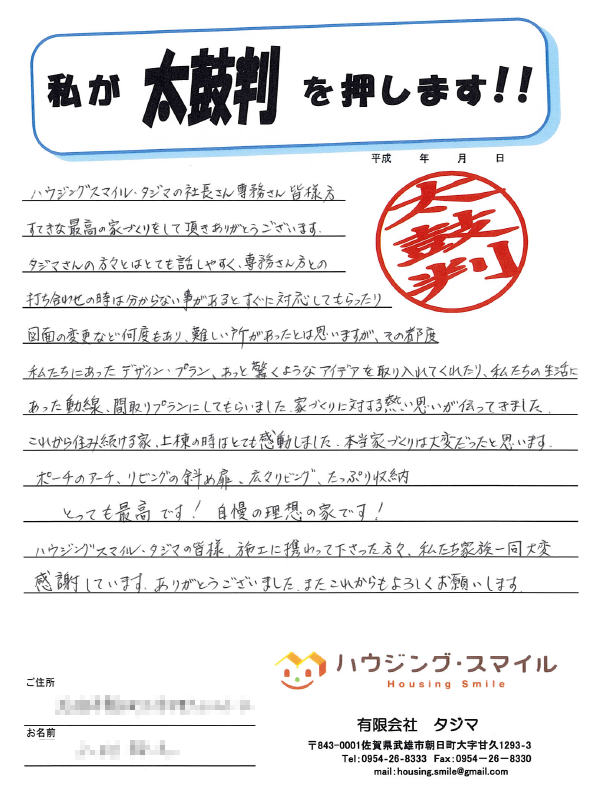 私が 太鼓判 を押します!!
平成 年 月 日
太鼓判
ハウジングスマイル・タジマの社長さん専務さん皆様方
すてきな最高の家づくりをして頂きありがとうございます。
タジマさんの方々とはとても話しやすく、専務さん方との
打ち合わせの時は分からない事があるとすぐに対応してもらったり
図面の変更など何度もあり、難しい所があったとは思いますが、その都度
私たちにあった デザイン・プラン、あっと驚くようなアイデアを取り入れてくれたり、私たちの生活に
あった動線、間取りプランにしてもらいました。家づくりに対する熱い思いが伝ってきました。
これから住み続ける家、上棟の時はとても感動しました。本当家づくりは大変だったと思います。
ポーチのアーチ、リビングの斜め扉、広々リビング、たっぷり収納
とっても最高です! 自慢の理想の家です!
ハウジングスマイル・タジマの皆様、施工に携わって下さった方々、私たち家族一同大変
感謝しています。ありがとうございました。またこれからもよろしくお願いします。
ハウジング・スマイル
Housing Smile
ご住所
お名前
有限会社 タジマ
〒843-0001佐賀県武雄市朝日町大字甘久1293-3
Tel:0954-26-8333 Fax:0954-26-8330
mail:housing.smile@gmail.com